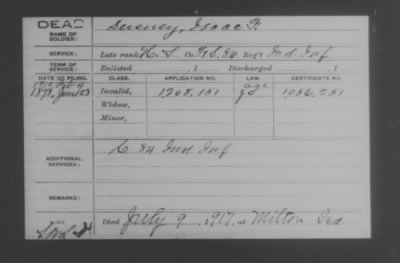 DEAD
NAME OF SOLDIER:
Sweney, Isaac F.
SERVICE:
Late rank H. S. Co. F&S, 84 Reg't Ind. Inf
TERM OF SERVICE:
Enlisted , 1 Discharged , 1
DATE OF FILING. CLASS. APPLICATION NO. LAW. CERTIFICATE NO.
1898, June 23 Invalid, 1208,151 age 1056,251
Widow,
Minor,
ADDITIONAL SERVICES:
K 84 Ind Inf
REMARKS:
Died July 9, 1917, at Milton Ind